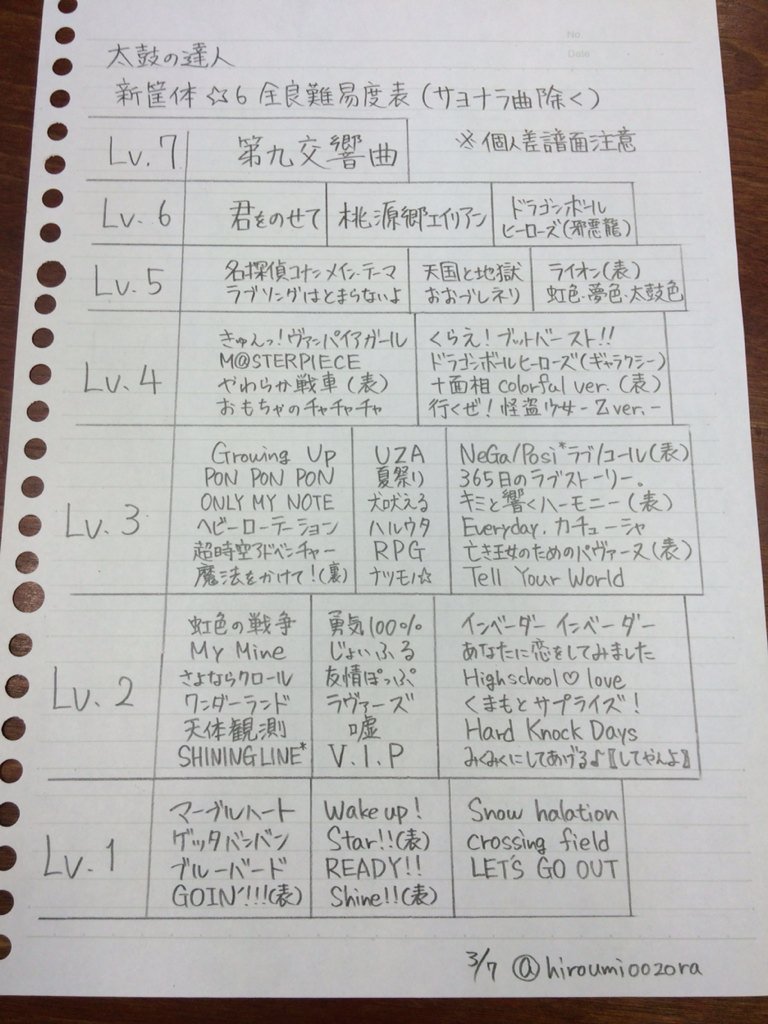 No.
Date
太鼓の達人
新筐体☆6 全良難易度表(サヨナラ曲除く)
※個人差譜面注意
Lv.7 第九交響曲
Lv.6 君をのせて 桃源郷エイリアン ドラゴンボール
ヒーローズ(邪悪龍)
Lv.5 名探偵コナン メイン・テーマ 天国と地獄 ライオン(表)
ラブソングはとまらないよ おおづしネリ 虹色・夢色・太鼓色
Lv.4
きゅんっ!ヴァンパイアガール くらえ!ブットバースト!!
M@STERPIECE ドラゴンボールヒーローズ(ギャラクシー)
やわらか戦車(表) 十面相 colorful ver.(表)
おもちゃのチャチャチャ 行くぜ!怪盗少女 -Z ver.-
Lv.3
Growing Up UZA NeGa/Posi*ラブ/コール(表)
PON PON PON 夏祭り 365日のラブストーリー。
ONLY MY NOTE 犬吠える キミと響くハーモニー(表)
ヘビーローテーション ハルウタ Everyday、カチューシャ
超時空アドベンチャー RPG 亡き王女のためのパヴァーヌ(表)
魔法をかけて!(裏) ナツモノ☆ Tell Your World
Lv.2
虹色の戦争 勇気100% インベーダー インベーダー
My Mine じょいふる あなたに恋をしてみました
さよならクロール 友情ぽっぷ Highschool♡love
ワンダーランド ラヴァーズ くまもとサプライズ!
天体観測 嘘 Hard Knock Days
SHINING LINE* V.I.P みくみくにしてあげる♪【してやんよ】
Lv.1
マーブルハート Wake up! Snow halation
ゲッタバンバン Star!!(表) crossing field
ブルーバード READY!! LET'S GO OUT
GOIN'!!!(表) Shine!!(表)
3/7 @hiroumioozora